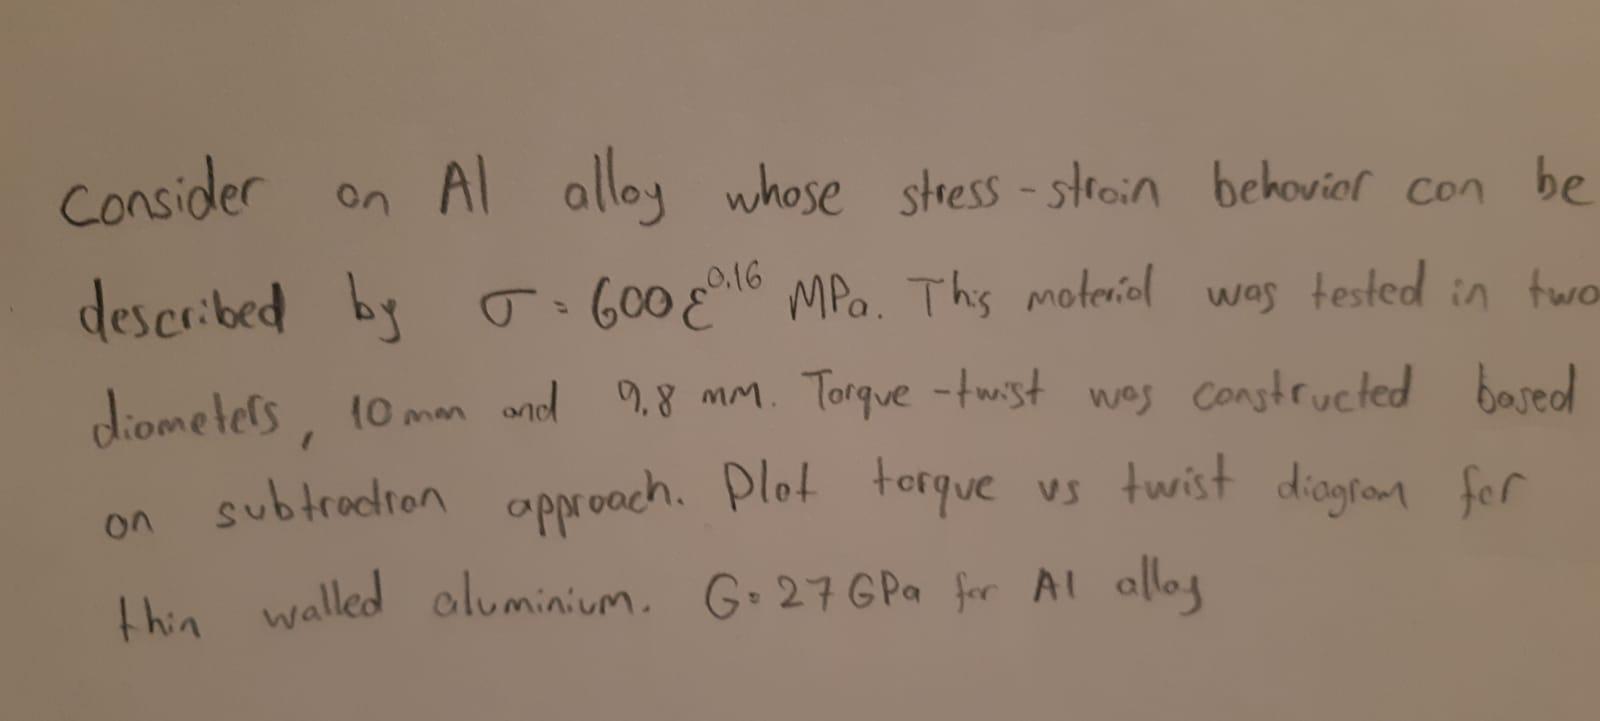 Consider an Al alloy whose stress-strain behavior can be
described by σ = 600ε^0.16 MPa. This material was tested in two
diameters, 10 mm and 9.8 mm. Torque-twist was constructed based
on subtraction approach. Plot torque vs twist diagram for
thin walled aluminium. G=27 GPa for Al alloy